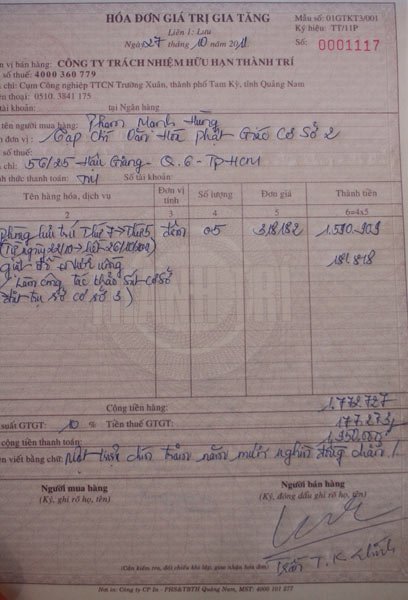 HÓA ĐƠN GIÁ TRỊ GIA TĂNG
Mẫu số: 01GTKT3/001
Liên 1: Lưu
Ký hiệu: TT/11P
Ngày 27 tháng 10 năm 2011
Số: 0001117
ơn vị bán hàng: CÔNG TY TRÁCH NHIỆM HỮU HẠN THÀNH TRÍ
số thuế: 4000 360 779
chỉ: Cụm Công nghiệp TTCN Trường Xuân, thành phố Tam Kỳ, tỉnh Quảng Nam
thoại: 0510. 3841 175
tài khoản: tại Ngân hàng
tên người mua hàng: Phạm Mạnh Hùng
đơn vị: Tạp Chí Văn Hóa Phật Giáo Cơ Sở 2
số thuế:
chỉ: 56/25 Hậu Giang - Q.6 - TPHCM
hình thức thanh toán: TM Số tài khoản:
Tên hàng hóa, dịch vụ Đơn vị tính Số lượng Đơn giá Thành tiền
2 3 4 5 6=4x5
Phòng lưu trú Thứ 7 → Thứ 5 đêm 05 318182 1.590.909
(Từ ngày 22/10 → hết 26/10/2011)
giặt đồ + nước uống 181.818
(Làm công tác khảo sát cơ sở
đặt trụ sở cơ sở 3)
Cộng tiền hàng: 1.772.727
suất GTGT: 10 % Tiền thuế GTGT: 177.273
cộng tiền thanh toán: 1.950.000
tiền viết bằng chữ: Một triệu chín trăm năm mươi nghìn đồng chẵn./
Người mua hàng Người bán hàng
(Ký, ghi rõ họ, tên) (Ký, đóng dấu ghi rõ họ, tên)
Trần T. K
(Cần kiểm tra, đối chiếu khi lập, giao nhận hóa đơn)
Nơi in: Công ty CP In - PHS&TBTH Quảng Nam, MST: 4000 101 277